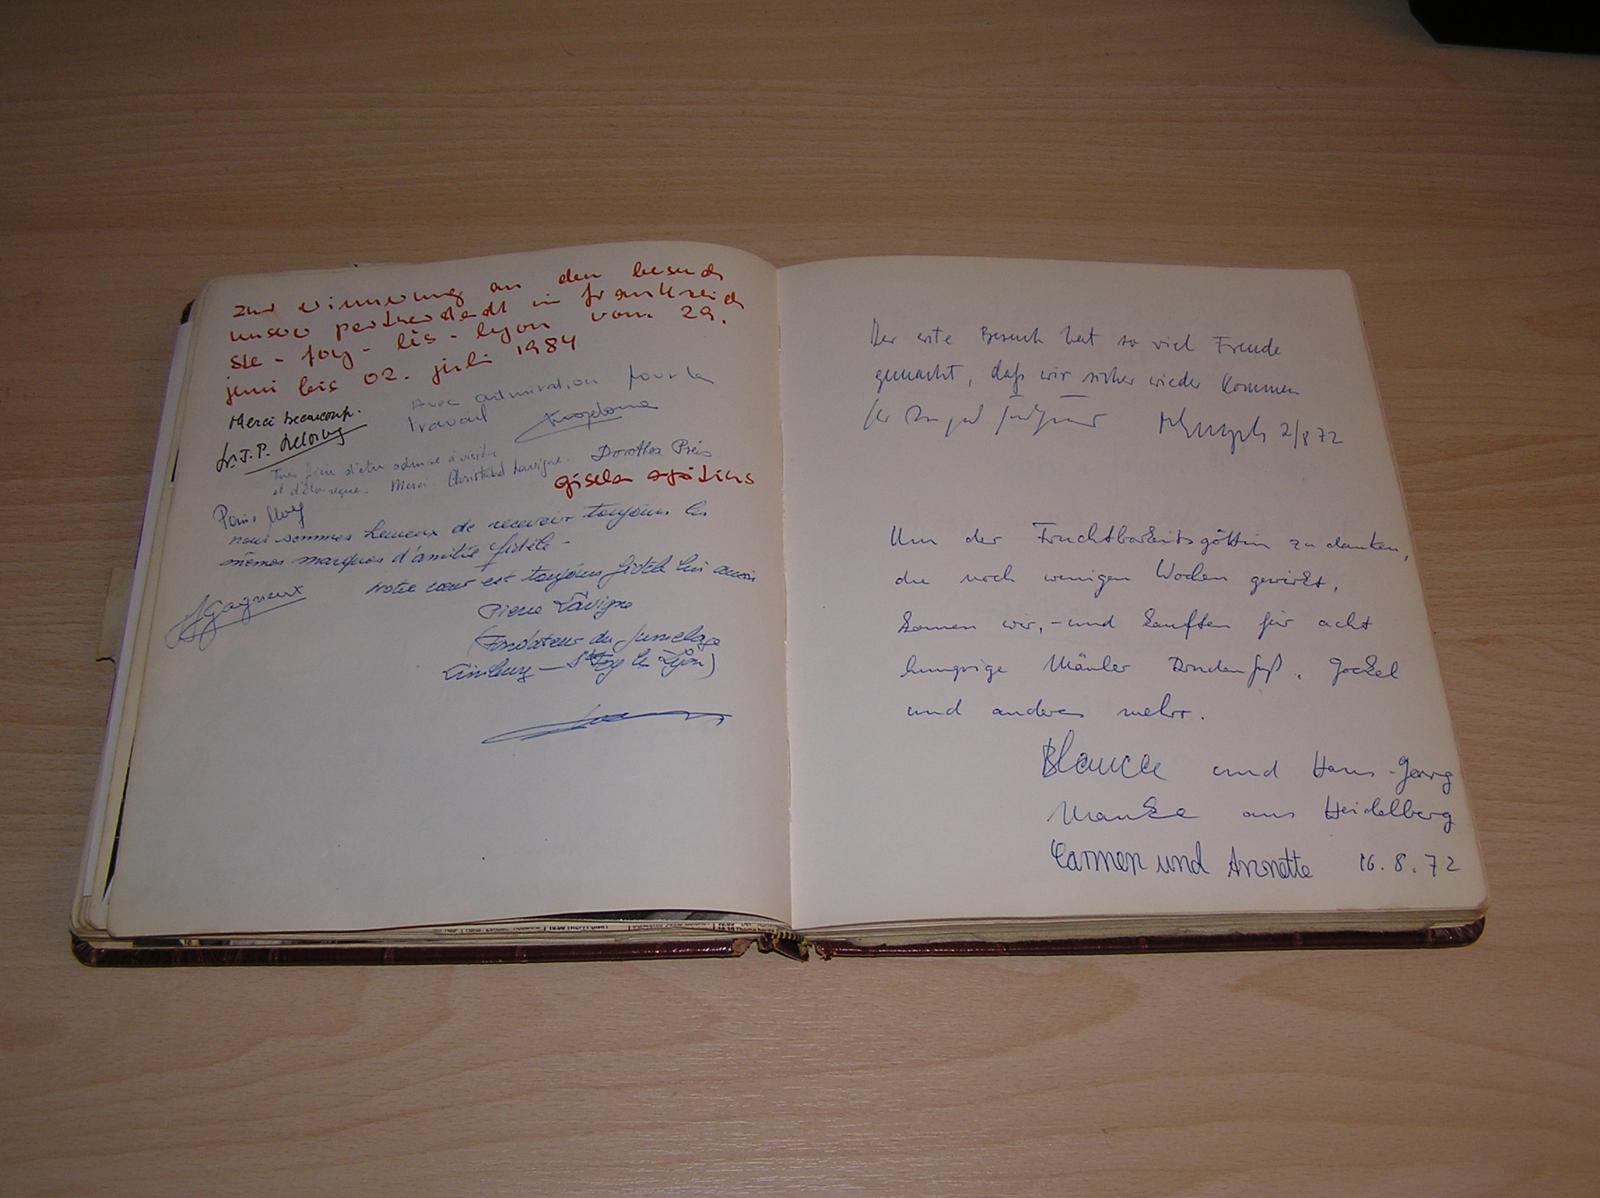 zur erinnerung an den besuch
unserer partnerstadt in frankreich
ste - foy - lès - lyon vom 29.
juni bis 02. juli 1984
Merci beaucoup.
Avec admiration pour le
travail
Dr. J. P. Delorme
Très d'être admise à visiter
et Merci Christabel Lavigne. Dorothea Preis
gisela
nous sommes heureux de recevoir toujours les
mêmes marques d'amitié fidèle -
Notre cœur est toujours fidèle lui aussi
Gagneux
Pierre Lavigne
(Fondateur du Jumelage
Limburg - Ste Foy lès Lyon)
Der erste Besuch hat so viel Freude
gemacht, daß wir sicher wieder kommen
2/8 72
Um der Fruchtbarkeitsgöttin zu danken,
die nach wenigen Wochen gewirkt,
kamen wir, - und kauften für acht
hungrige Mäuler Gockel
und anderes mehr.
Blanca und Hans-Georg
Manke aus Heidelberg
Carmen und Annette 16.8.72